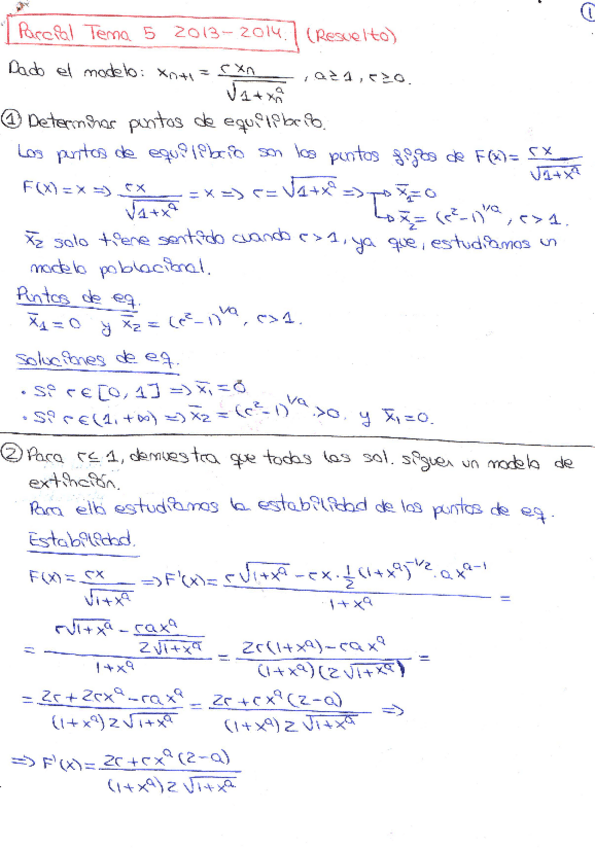 1
Parcial Tema 5 2013-2014. (Resuelto)
Dado el modelo: xₙ₊₁ = rxₙ/√(1+xₙᵃ), a≥1, r≥0.
① Determinar puntos de equilibrio.
Los puntos de equilibrio son los puntos fijos de F(x) = rx/√(1+xᵃ)
F(x)=x => rx/√(1+xᵃ) = x => r=√(1+xᵃ) => x̄₁=0
x̄₂=(r²-1)^(1/a), r>1.
x̄₂ solo tiene sentido cuando r>1, ya que, estudiamos un
modelo poblacional.
Puntos de eq.
x̄₁=0 y x̄₂=(r²-1)^(1/a), r>1.
Soluciones de eq.
• Si r∈[0,1] => x̄₁=0
• Si r∈(1,+∞) => x̄₂=(r²-1)^(1/a)>0. y x̄₁=0.
② Para r≤1, demuestra que todas las sol. siguen un modelo de
extinción.
Para ello estudiamos la estabilidad de los puntos de eq.
Estabilidad.
F(x) = rx/√(1+xᵃ) => F'(x) = (r√(1+xᵃ) - rx·½(1+xᵃ)^(-1/2)·axᵃ⁻¹)/(1+xᵃ) =
= (r√(1+xᵃ) - raxᵃ/(2√(1+xᵃ)))/(1+xᵃ) = (2r(1+xᵃ)-raxᵃ)/((1+xᵃ)(2√(1+xᵃ))) =
= (2r+2rxᵃ-raxᵃ)/((1+xᵃ)2√(1+xᵃ)) = (2r+rxᵃ(2-a))/((1+xᵃ)2√(1+xᵃ)) =>
=> F'(x) = (2r+rxᵃ(2-a))/((1+xᵃ)2√(1+xᵃ))